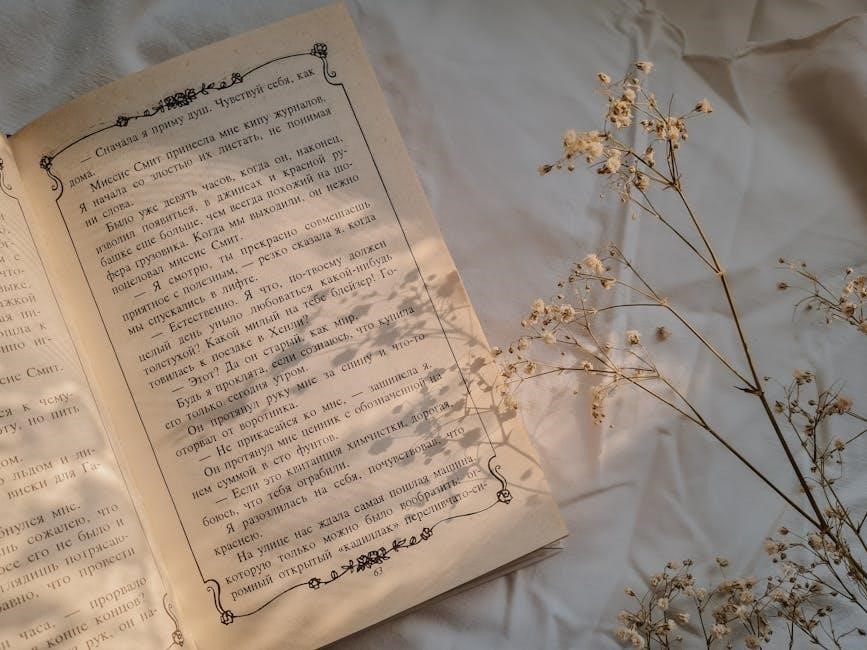 что-
выке.
ажкой
ая ни-
ошла к
нно иг-
сис Смит.
ся к чему-
оту, но пить
ом.
льдом и ли-
виски для Га-
нулся мне.
сожалею, что
его не было и
глядишь потрясаю-
авно, что провести
часа, — прорвало
в конце концов?
рук, он на-
— Сначала я приму душ. Чувствуй себя, как
дома.
Миссис Смит принесла мне кипу журналов.
Я начала со злостью их листать, не понимая
ни слова.
Было уже девять часов, когда он, наконец,
изволил появиться, в джинсах и красной ру-
башке еще больше, чем всегда похожий на шо-
фера грузовика. Когда мы выходили, он нежно
поцеловал миссис Смит.
— Я смотрю, ты прекрасно совмещаешь
приятное с полезным, — резко сказала я, когда
мы спускались в лифте.
— Естественно. Я что, по-твоему должен
целый день уныло любоваться какой-нибудь
толстухой? Какой милый на тебе блейзер! Го-
товилась к поездке в Хенли?
— Этот? Да он старый, как мир.
Будь я проклята, если сознаюсь, что купила
его только сегодня утром.
Он протянул руку мне за спину и что-то
оторвал от воротника.
— Не прикасайся ко мне, — зашипела я.
Он протянул мне ценник с обозначенной на
нем суммой в сто фунтов.
— Если это квитанция химчистки, дорогая,
боюсь, что тебя ограбили.
Я разозлилась на себя, почувствовав, что
краснею.
На улице нас ждала самая пошлая машина,
которую только можно было вообразить: ог-
ромный открытый «кадиллак» переливчато-си-
63